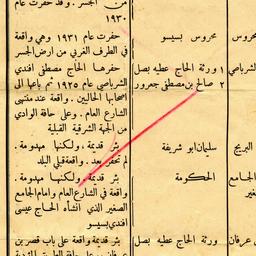 من الجسر . وقد حفرت عام
١٩٣٠
محروس
محروس بسيسو
حفرت عام ١٩٣١ وهي واقعة
في الطرف الغربي من ارض الجسر
الشرباصي
١ ورثة الحاج عطيه بصل
حفرها الحاج مصطفى افندي
٢ صالح بن مصطفى جعرور
الشرباصي عام ١٩٢٥ ثم باعها الى
اصحابها الحاليين . واقعة عند منتهى
الشارع العام . وعلى حافة الوادي
من الجهة الشرقية القبلية
البريج
سليمان ابو شريفة
بئر قديمة . ولكنها مهدومة .
لم تحفر بعد . واقعة قبلي البلد
الجامع
الحكومة
بئر قديمة . ولكنها مهدومة .
واقعة في الشارع العام وامام الجامع
الصغير الذي انشأه الحاج عيسى
افندي بسيسو
عرفان
ورثة الحاج عطيه بصل
بئر قديمة واقعة على باب قصر بن